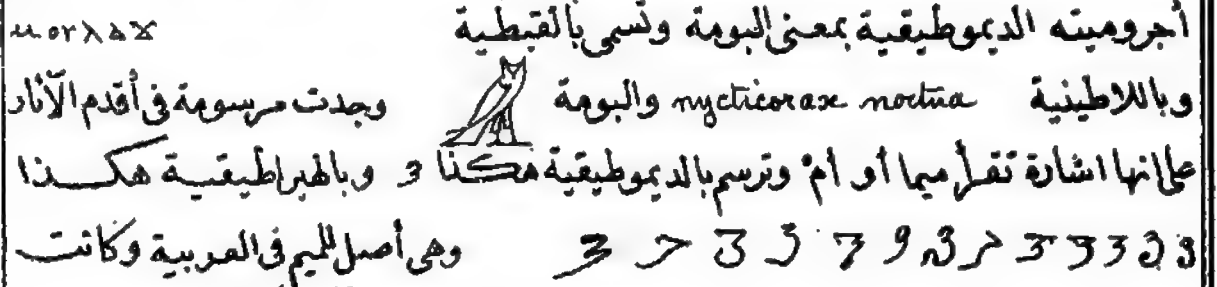 أجروميته الديموطيقية بمعنى البومة وتسمى بالقبطية
وباللاطينية nycticorax noctua والبومة وجدت مرسومة فى أقدم الآثار
على انها اشارة تقرأ ميما أو امْ وترسم بالديموطيقية هكذا 3 وبالهيراطيقية هكذا
وهى أصل للميم فى العربية وكانت